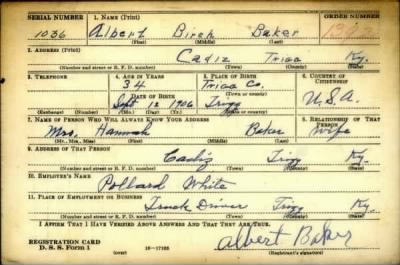 SERIAL NUMBER 1. NAME (Print) ORDER NUMBER
1036 Albert Birch Baker
(First) (Middle) (Last)
2. ADDRESS (Print)
Cadiz Trigg Ky.
(Number and street or R. F. D. number) (Town) (County) (State)
3. TELEPHONE 4. AGE IN YEARS 5. PLACE OF BIRTH 6. COUNTRY OF CITIZENSHIP
34 Trigg Co.
(Town or county)
DATE OF BIRTH
Sept 12 1906 Trigg U.S.A.
(Exchange) (Number) (Mo.) (Day) (Yr.) (State or country)
7. NAME OF PERSON WHO WILL ALWAYS KNOW YOUR ADDRESS 8. RELATIONSHIP OF THAT PERSON
Mrs. Hannah Baker Wife
(Mr., Mrs., Miss) (First) (Middle) (Last)
9. ADDRESS OF THAT PERSON
Cadiz Trigg Ky.
(Number and street or R. F. D. number) (Town) (County) (State)
10. EMPLOYER'S NAME
Pollard White
11. PLACE OF EMPLOYMENT OR BUSINESS
Truck Driver Trigg Ky.
(Number and street or R. F. D. number) (Town) (County) (State)
I AFFIRM THAT I HAVE VERIFIED ABOVE ANSWERS AND THAT THEY ARE TRUE.
Albert Baker
REGISTRATION CARD
D. S. S. Form 1 (over) 16—17105 (Registrant's signature)